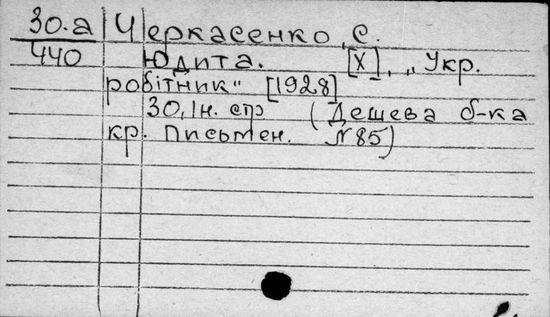 30.а Черкасенко, С.
440 Юдита. [Х], „Укр.
робітник" [1928]
30, Ін. стр (Дешева б-ка
кр. письмен. №85)